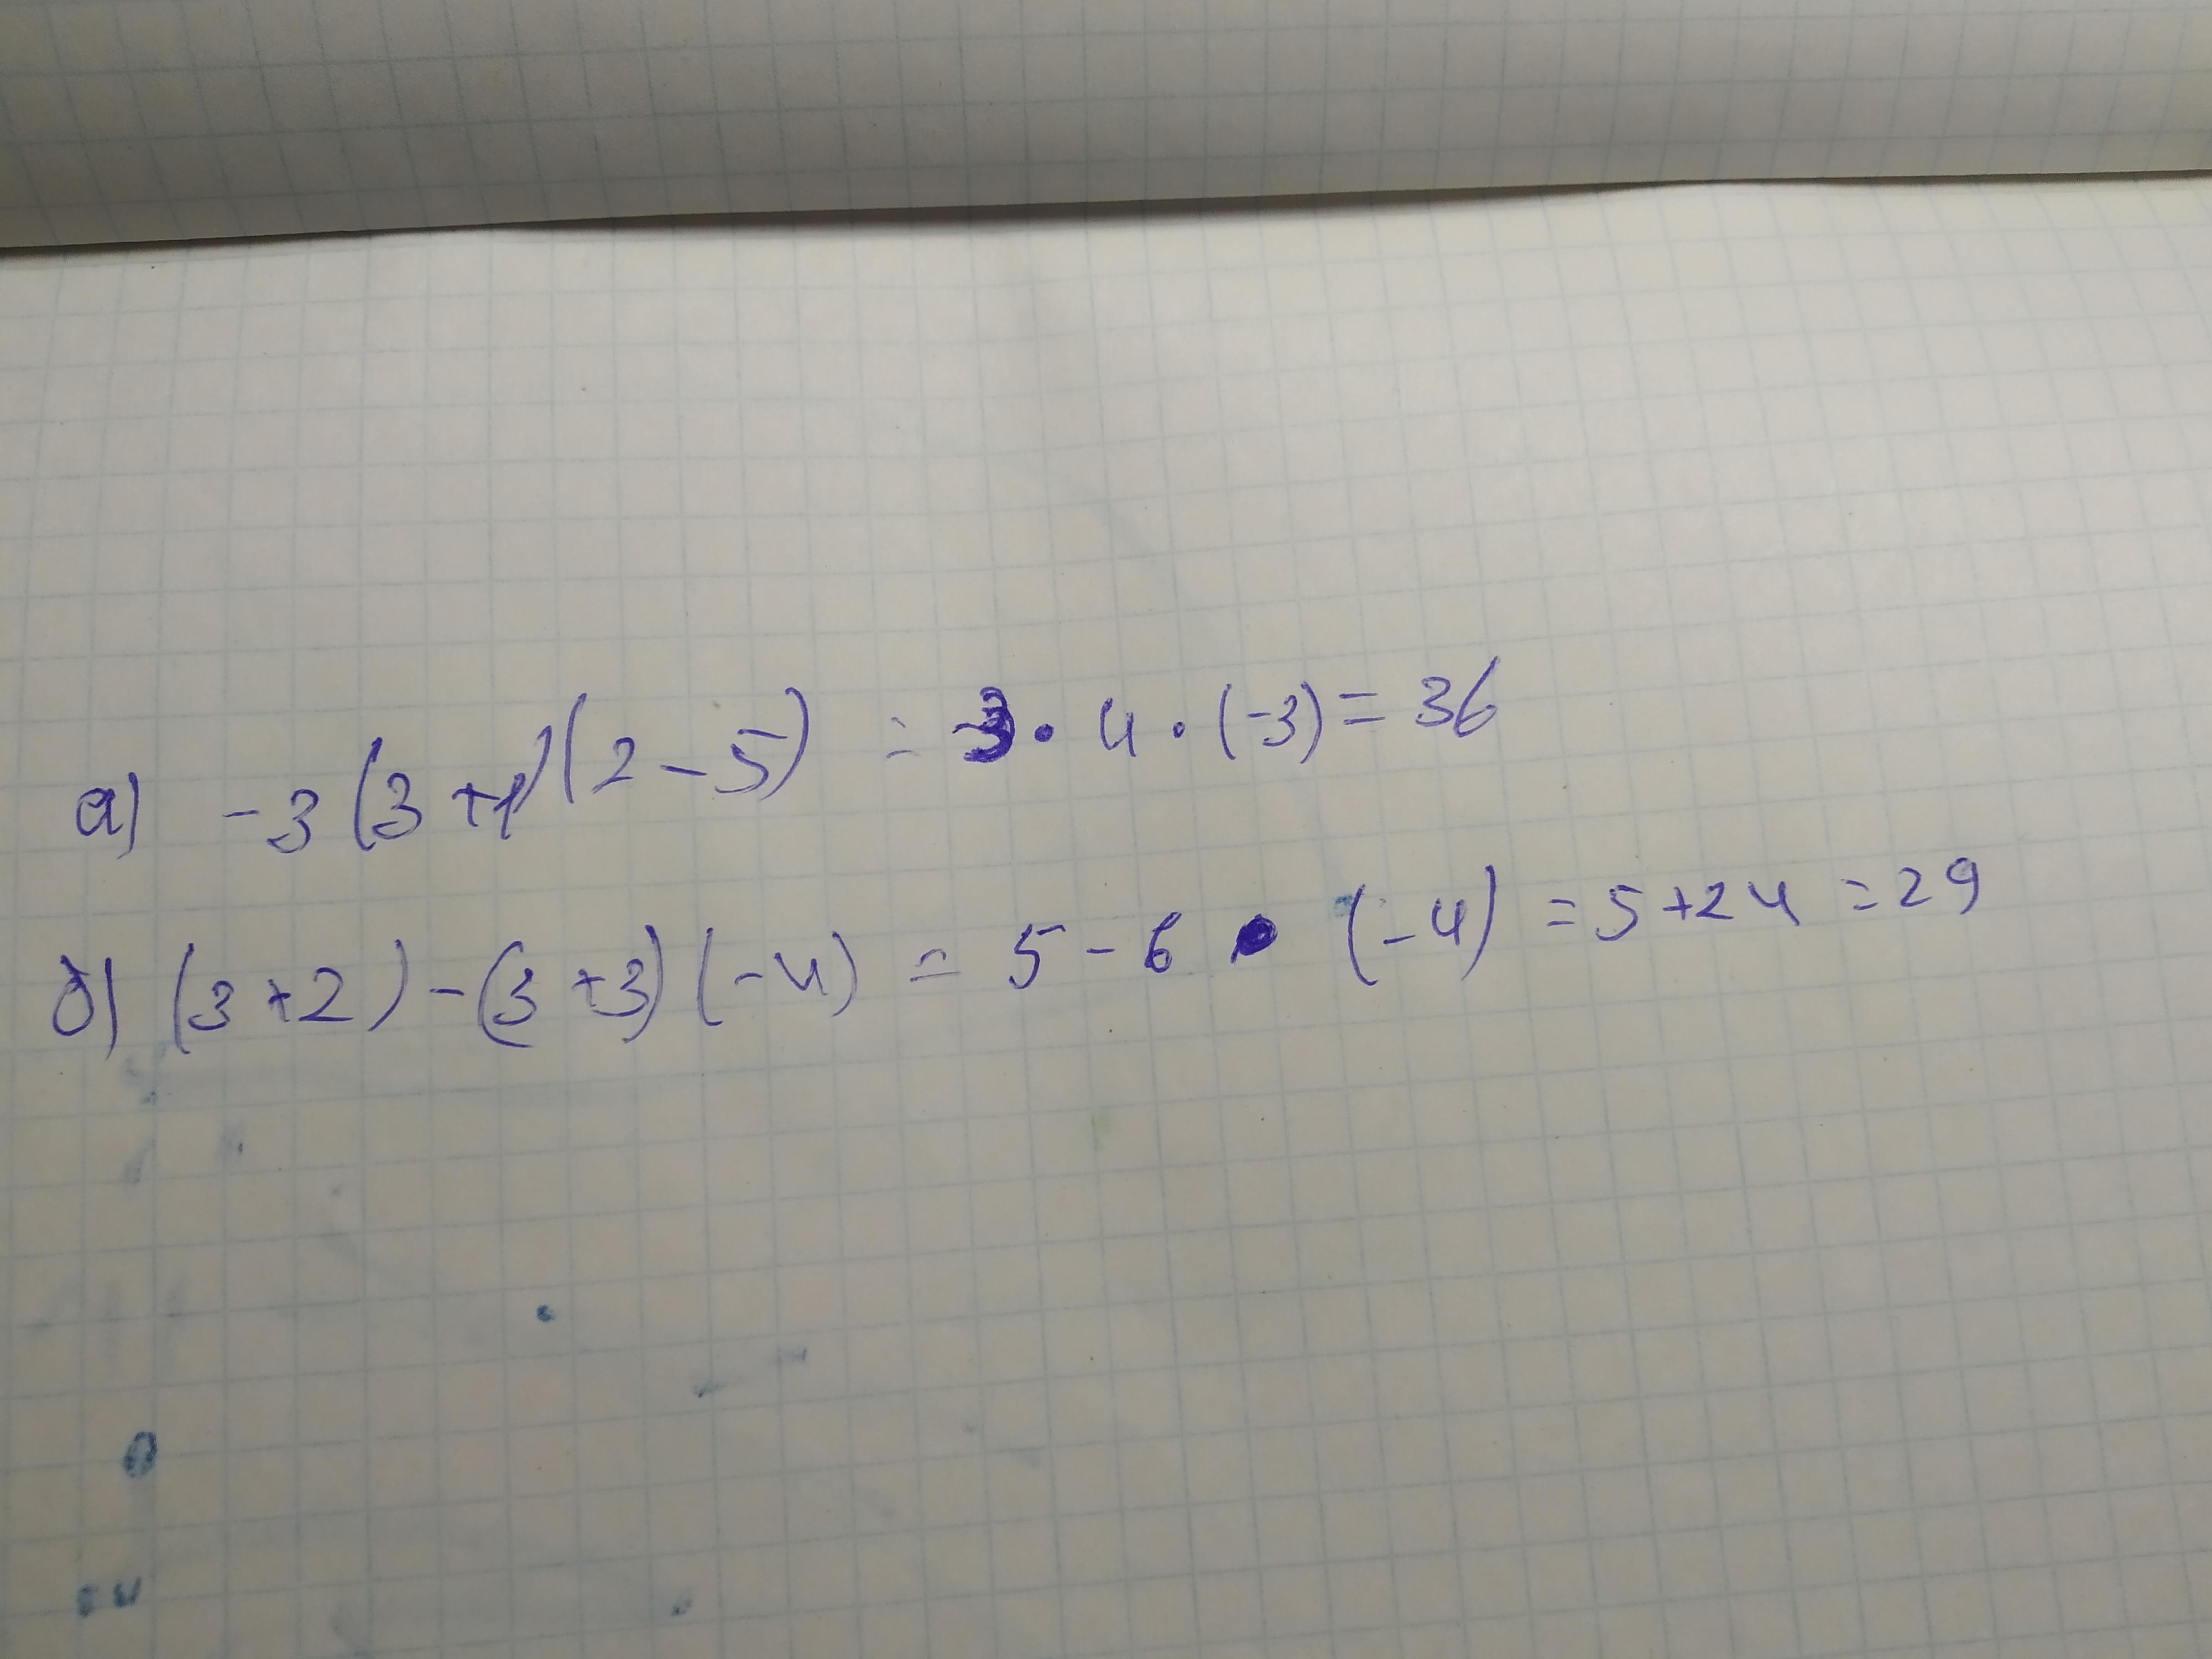 а) -3(3+1)(2-5) = -3 · 4 · (-3) = 36
б) (3+2)-(3+3)(-4) = 5-6 · (-4) = 5+24 = 29